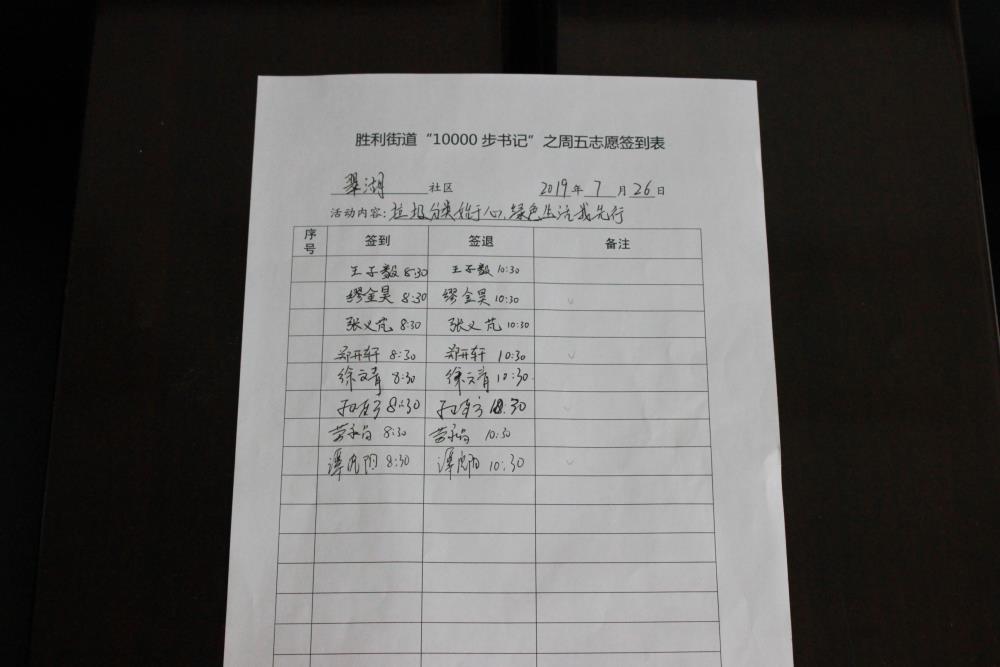 胜利街道“10000步书记”之周五志愿签到表
翠湖 社区 2019年7月26日
活动内容：垃圾分类始于心，绿色生活我先行
序号 签到 签退 备注
王子毅 8:30 王子毅 10:30
缪金昊 8:30 缪金昊 10:30
张义芃 8:30 张义芃 10:30
郑开轩 8:30 郑开轩 10:30
徐文青 8:30 徐文青 10:30
8:30 10:30
劳 8:30 劳 10:30
谭 8:30 谭 10:30